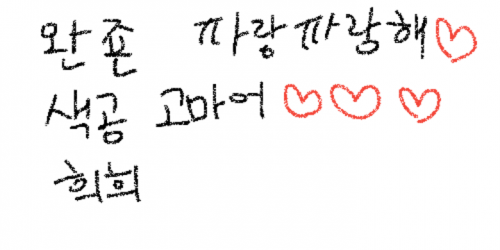 완죤 짜랑짜랑해♡
색공 고마어 ♡♡ ♡
희희